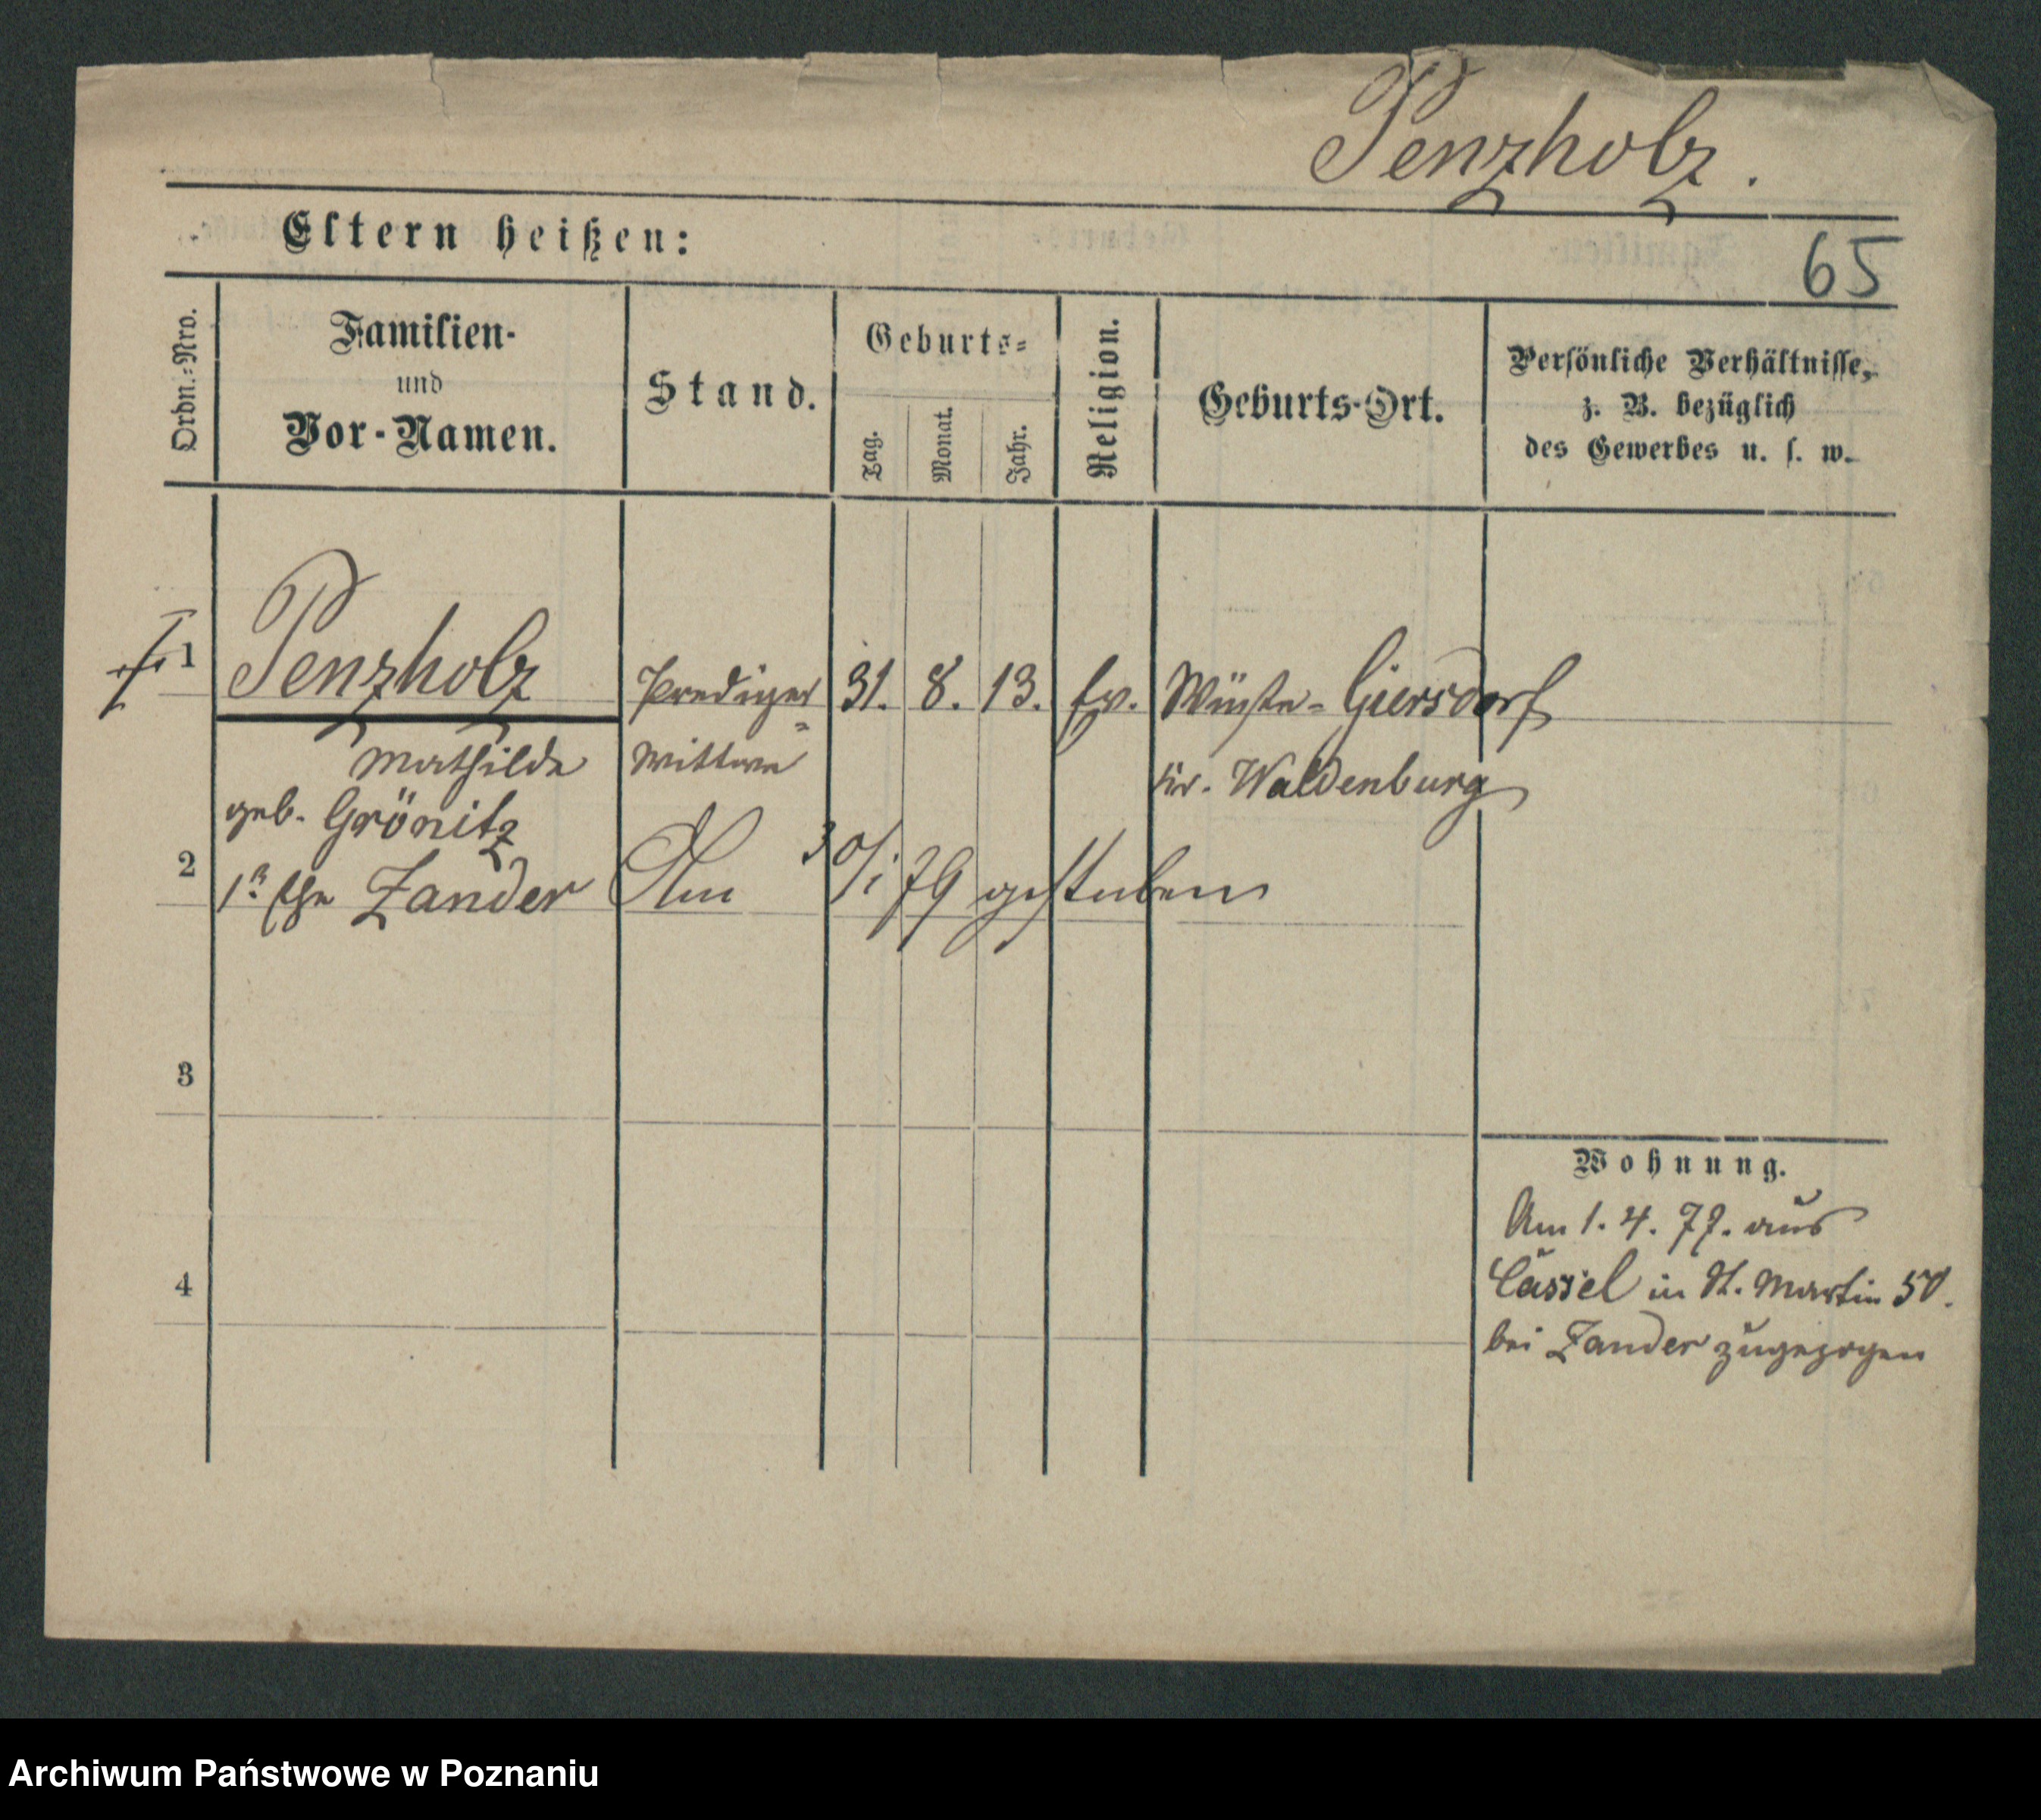 Penzholz.
Eltern heißen:
65
Ordn.-Nro.
Familien-
und
Vor-Namen.
Stand.
Geburts-
Tag.
Monat.
Jahr.
Religion.
Geburts-Ort.
Persönliche Verhältnisse,
z. B. bezüglich
des Gewerbes u. s. w.
1 Penzholz Prediger= 31. 8. 13. Ev. Wüste-Giersdorf
Mathilde Wittwe Kr. Waldenburg
geb. Grönitz
2 1r Ehe Zander Am 30/1 79 gestorben
3
4
Wohnung.
Am 1. 4. 77. aus
Cassel in St. Martin 50.
bei Zander zugezogen
Archiwum Państwowe w Poznaniu